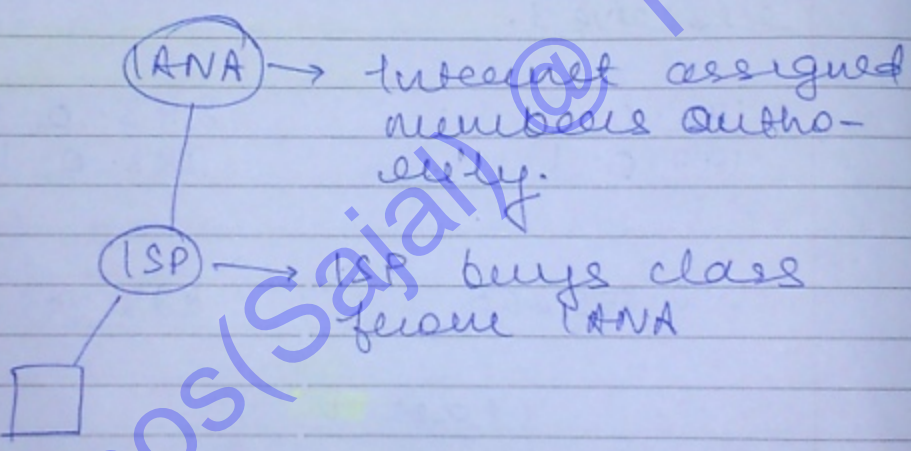 IANA → Internet assigned
numbers autho-
rity.
ISP → ISP buys class
from IANA
os(Sajal) @